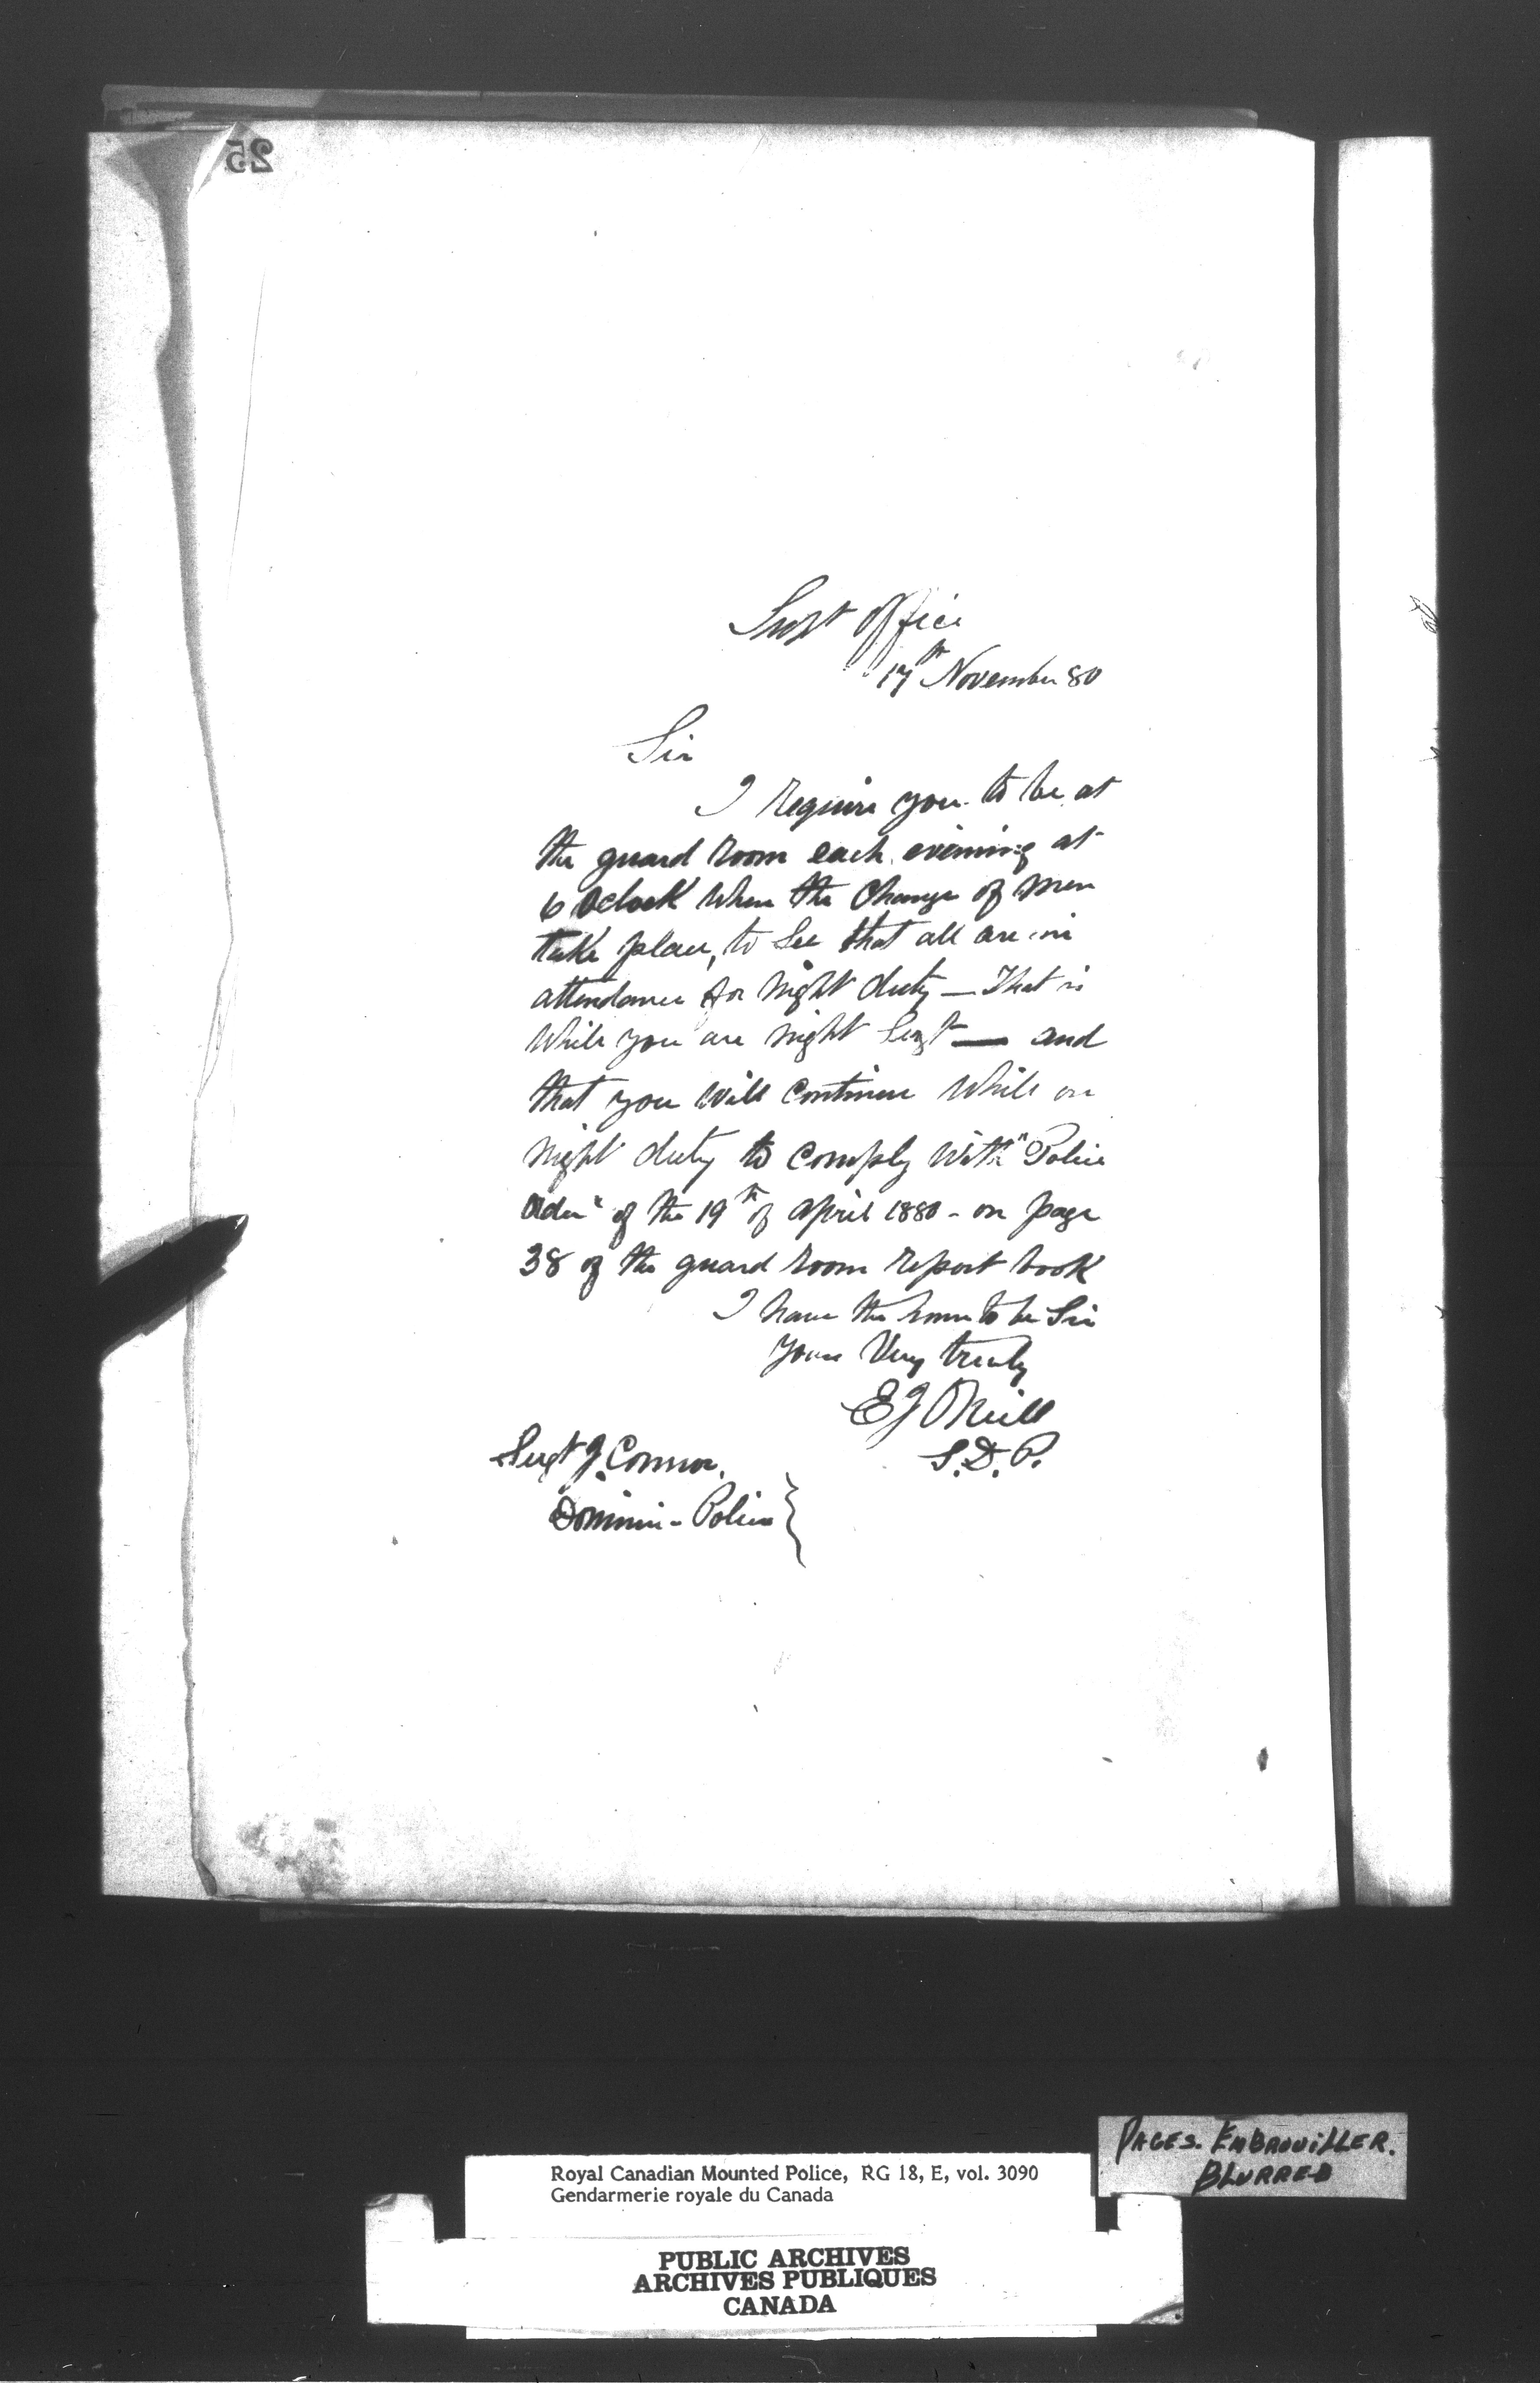 25
Supt Office
17th November 80
Sir
I require you to be at
the guard room each evening at
6 Oclock when the Change of men
take place, to see that all are in
attendance for night duty — That is
while you are night Sergt — and
that you will continue while on
night duty to comply with "Police
Order" of the 19th of april 1880 - on page
38 of the guard room report book
I have the honor to be Sir
Yours Very truly
E J O'Neill
S.D.P.
Sergt J. Connor.
Dominion Police
PAGES. EMBROUILLER.
BLURRED
Royal Canadian Mounted Police, RG 18, E, vol. 3090
Gendarmerie royale du Canada
PUBLIC ARCHIVES
ARCHIVES PUBLIQUES
CANADA